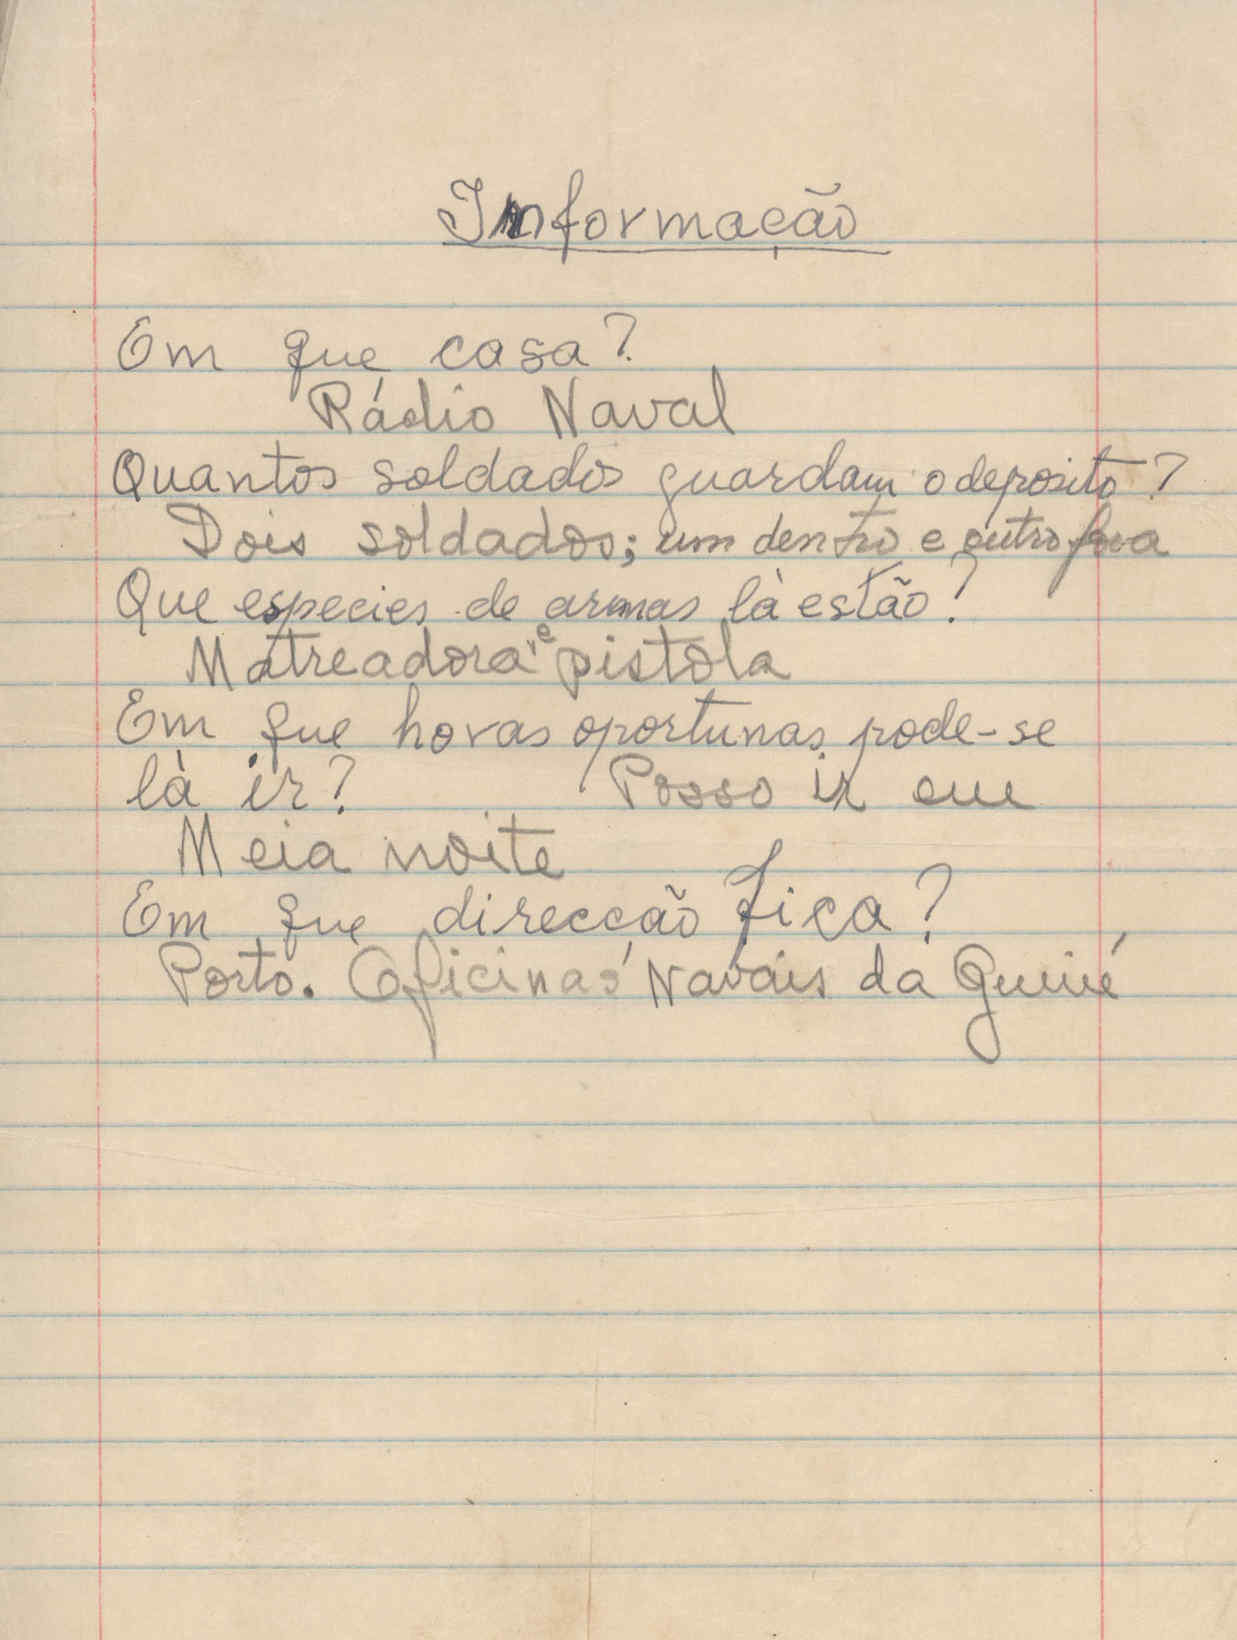 Informação
Em que casa?
Rádio Naval
Quantos soldados guardam o deposito?
Dois soldados; um dentro e outro fora
Que especies de armas là estão?
Matreadora e pistola
Em que horas oportunas pode-se
là ir? Posso ir em
Meia noite
Em que direcção fica?
Porto. Oficinas Navais da Guiné